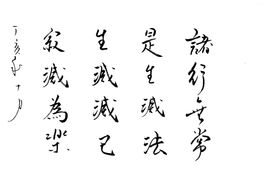 諸行無常
是生滅法
生滅滅已
寂滅為樂
丁亥年十月